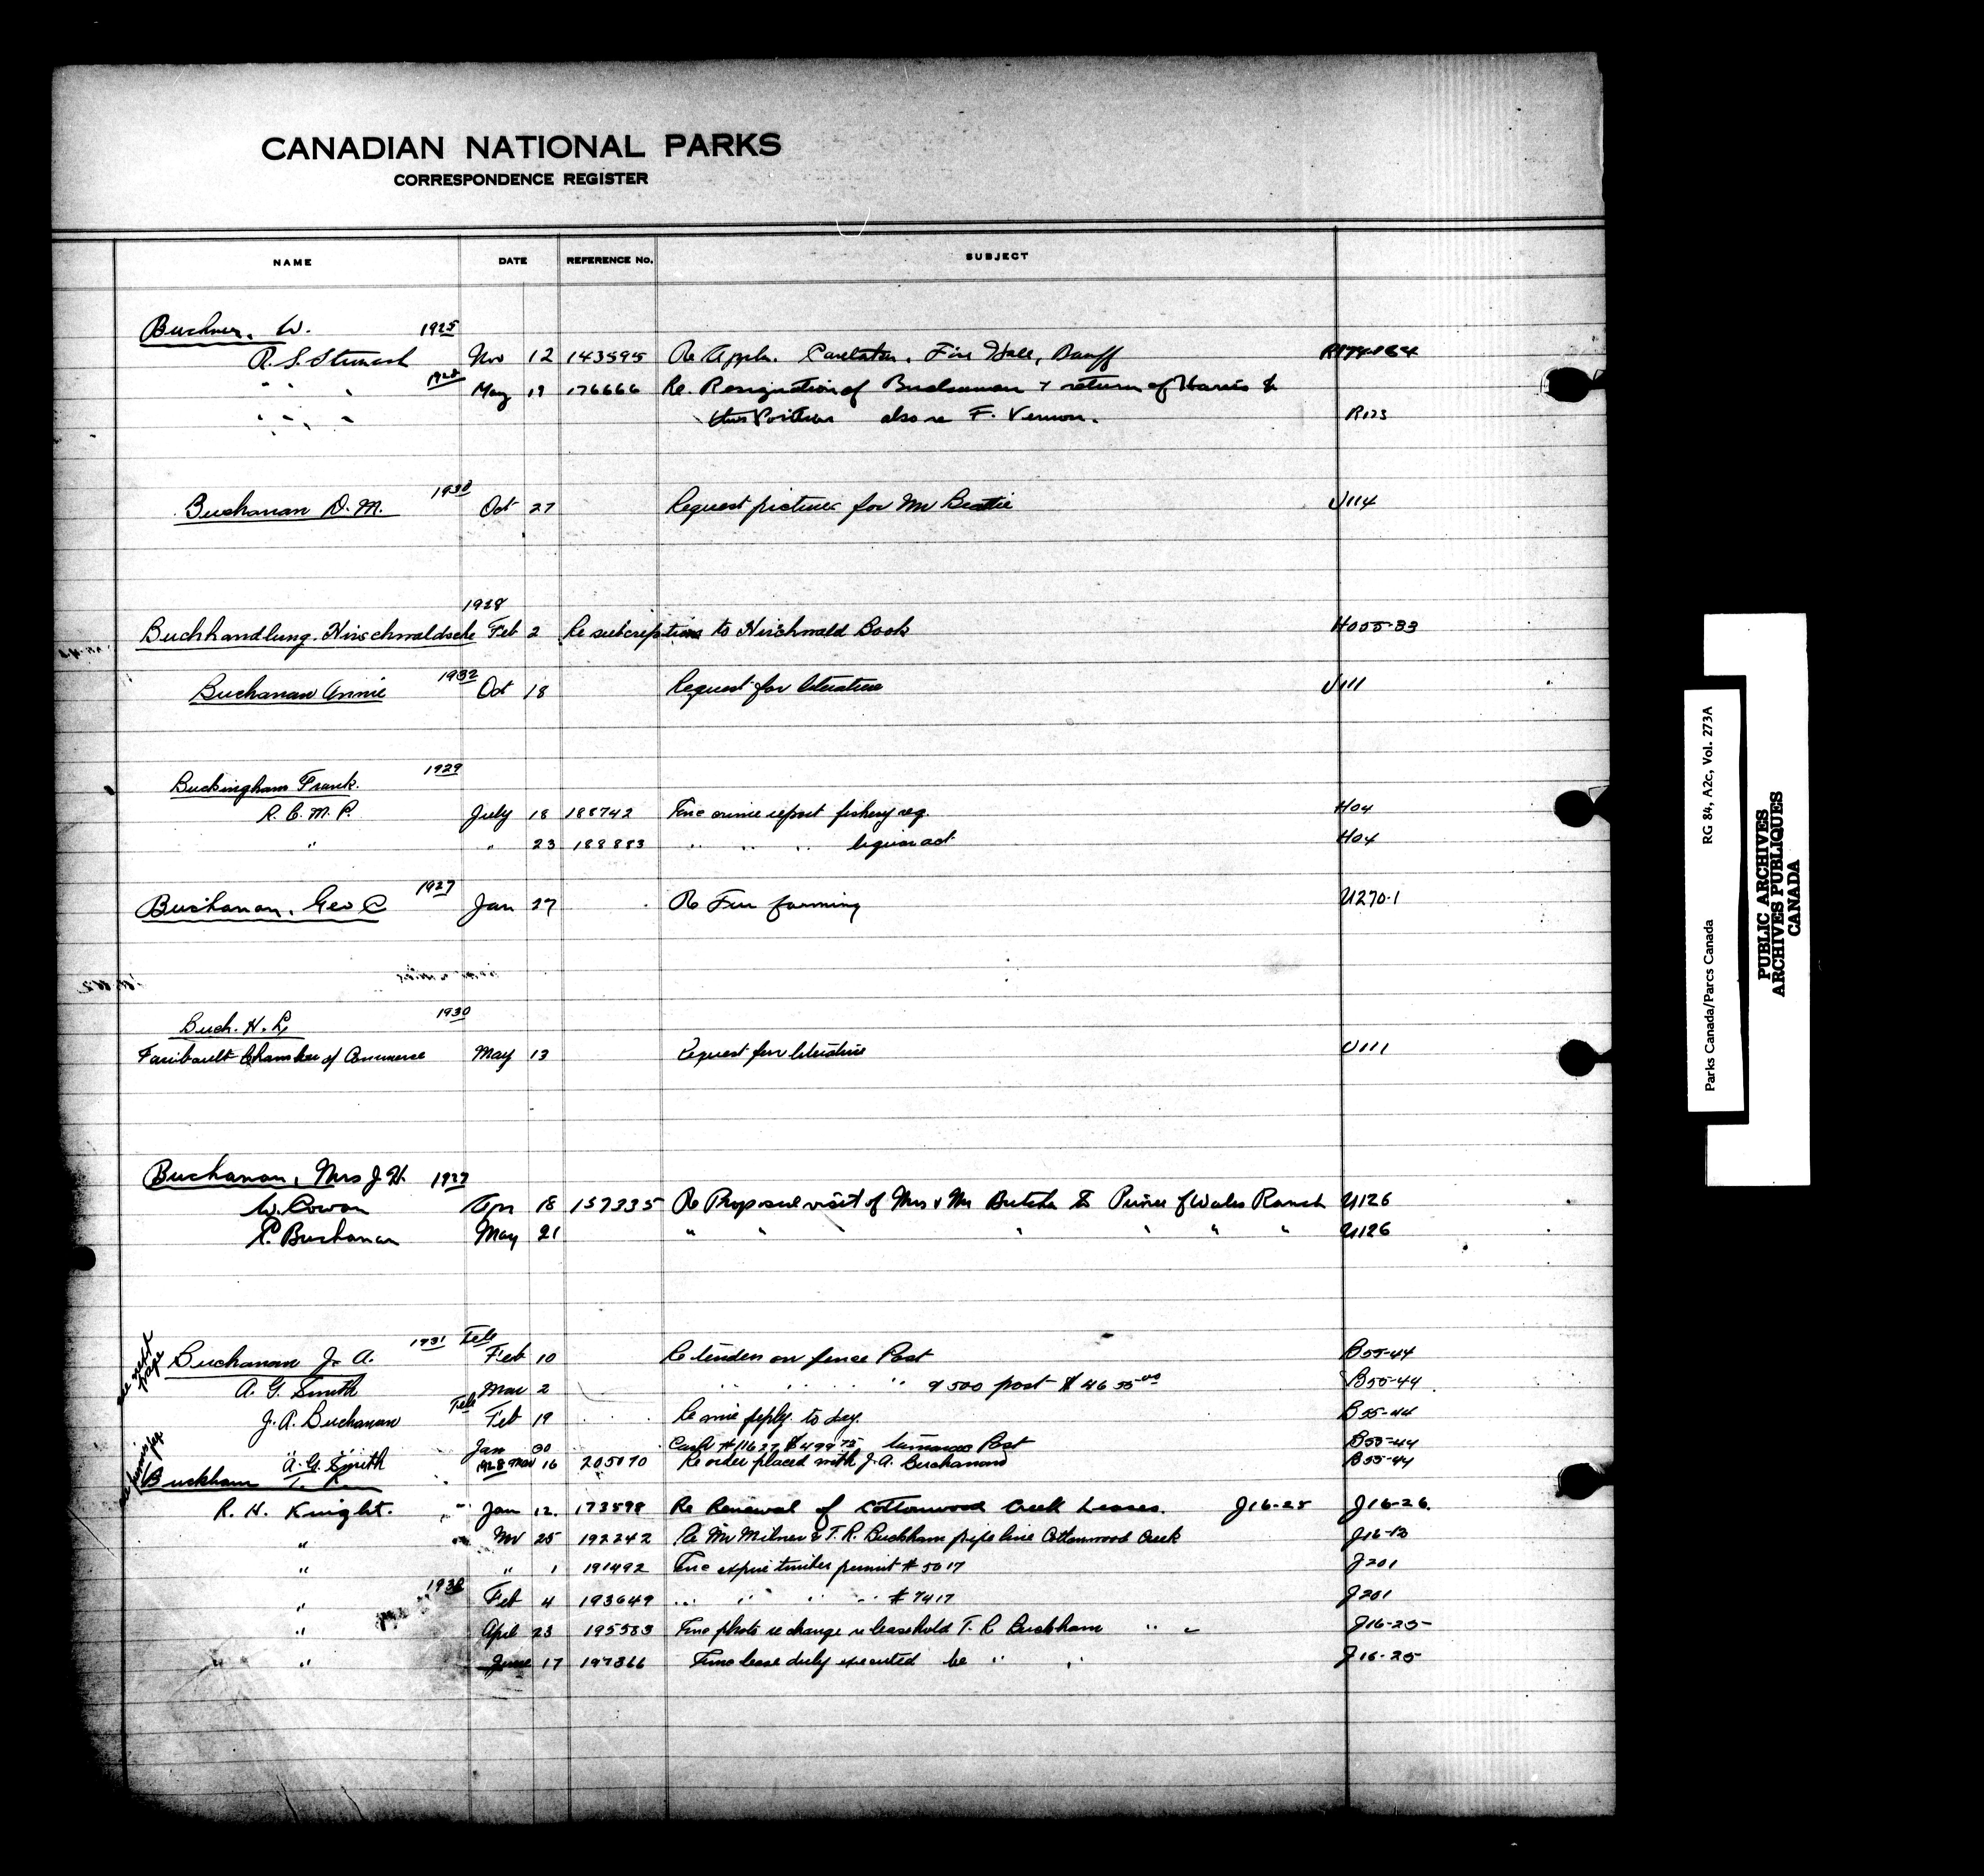 CANADIAN NATIONAL PARKS
CORRESPONDENCE REGISTER
NAME DATE REFERENCE NO. SUBJECT
Buchner, W. 1925
R. S. Stronach Nov 12 143595 Re Appln. Caretaker, Fire Hall, Banff R174-184
" " " 1928 May 19 176666 Re. Resignation of Buchanan & return of Harris to
" " " this Position also re F. Vernon. R123
Buchanan D. M. 1930 Oct 27 Request pictures for Mr Beattie U114
1928
Buchhandlung. Hirschwaldsche Feb 2 Re subscription to Hirschwald Book H055-83
Buchanan Annie 1932 Oct 18 Request for literature U111
Buckingham Frank. 1929
R. C. M. P. July 18 188742 Enc crime report fishery reg. H04
" " 23 188883 " " " liquor act H04
Buchanan, Geo C 1927 Jan 27 Re Fur farming U270-1
Buch. H. L. 1930
Faribault Chamber of Commerce May 13 Request for literature U111
Buchanan, Mrs J H. 1927
W. Cowan Apr 18 157335 Re Proposed visit of Mrs & Mr Butcha to Prince of Wales Ranch U126
E. Buchanan May 21 " " " " " " " U126
see next page
1931 Tele
Buchanan J. A. Feb 10 Re tender on fence Post B55-44
A. G. Smith Mar 2 " " " 9500 post $4655.00 B55-44
J. A. Buchanan Tele Feb 19 Re wire reply to day. B55-44
Jan 30 Cash #11627 $499.75 tamarac Post B55-44
" A. G. Smith Mar 16 205070 Re order placed with J. A. Buchanan B55-44
Buckham T. R. 1928
R. H. Knight. " Jan 12. 173598 Re Renewal of Cottonwood Creek Leases. J16-25 J16-26.
" " Nov 25 192242 Re Mr Milner & T. R. Buckham pipe line Cottonwood Creek J16-13
" " 1 191492 Enc expire timber permit #5017 J201
" 1930 Feb 4 193649 " " " " #7417 J201
" April 23 195583 Enc photo re change re leasehold T. R Buckham " " J16-25
" June 17 197366 Enc lease duly executed be " " J16-25
RG 84, A2c, Vol. 273A
Parks Canada/Parcs Canada
PUBLIC ARCHIVES
ARCHIVES PUBLIQUES
CANADA